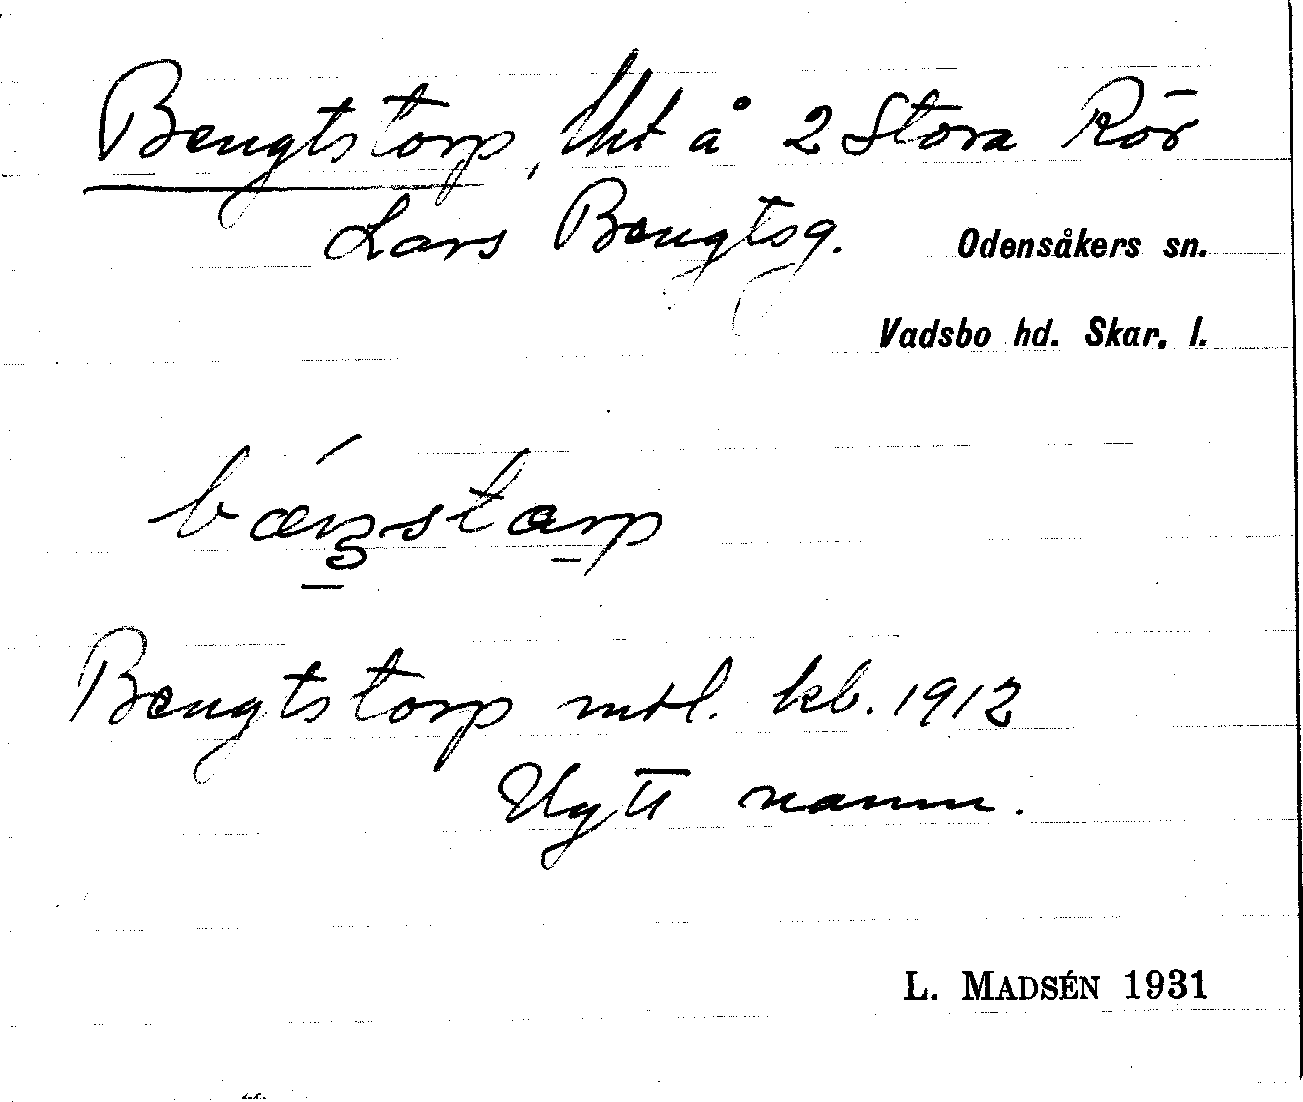 Bengtstorp, lht å 2 Stora Rör
Lars Bengtsg.
Odensåkers sn.
Vadsbo hd. Skar. l.
Bengtstorp mtl. kb. 1912
Nytt namn.
L. MADSÉN 1931